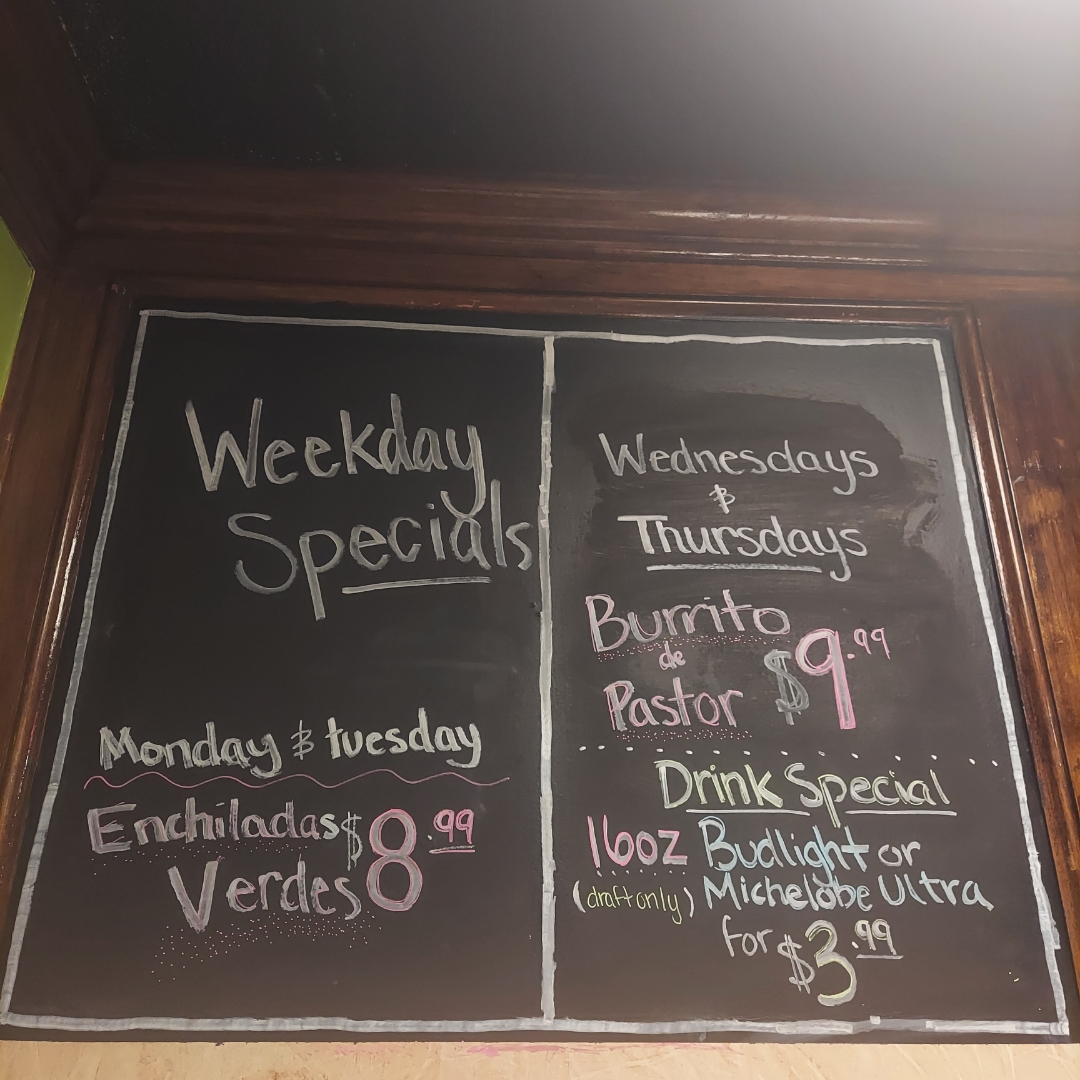 Weekday
Specials
Monday & tuesday
Enchiladas $8.99
Verdes
Wednesdays
&
Thursdays
Burrito
de
Pastor $9.99
Drink Special
16oz Budlight or
(draft only) Michelobe Ultra
for $3.99